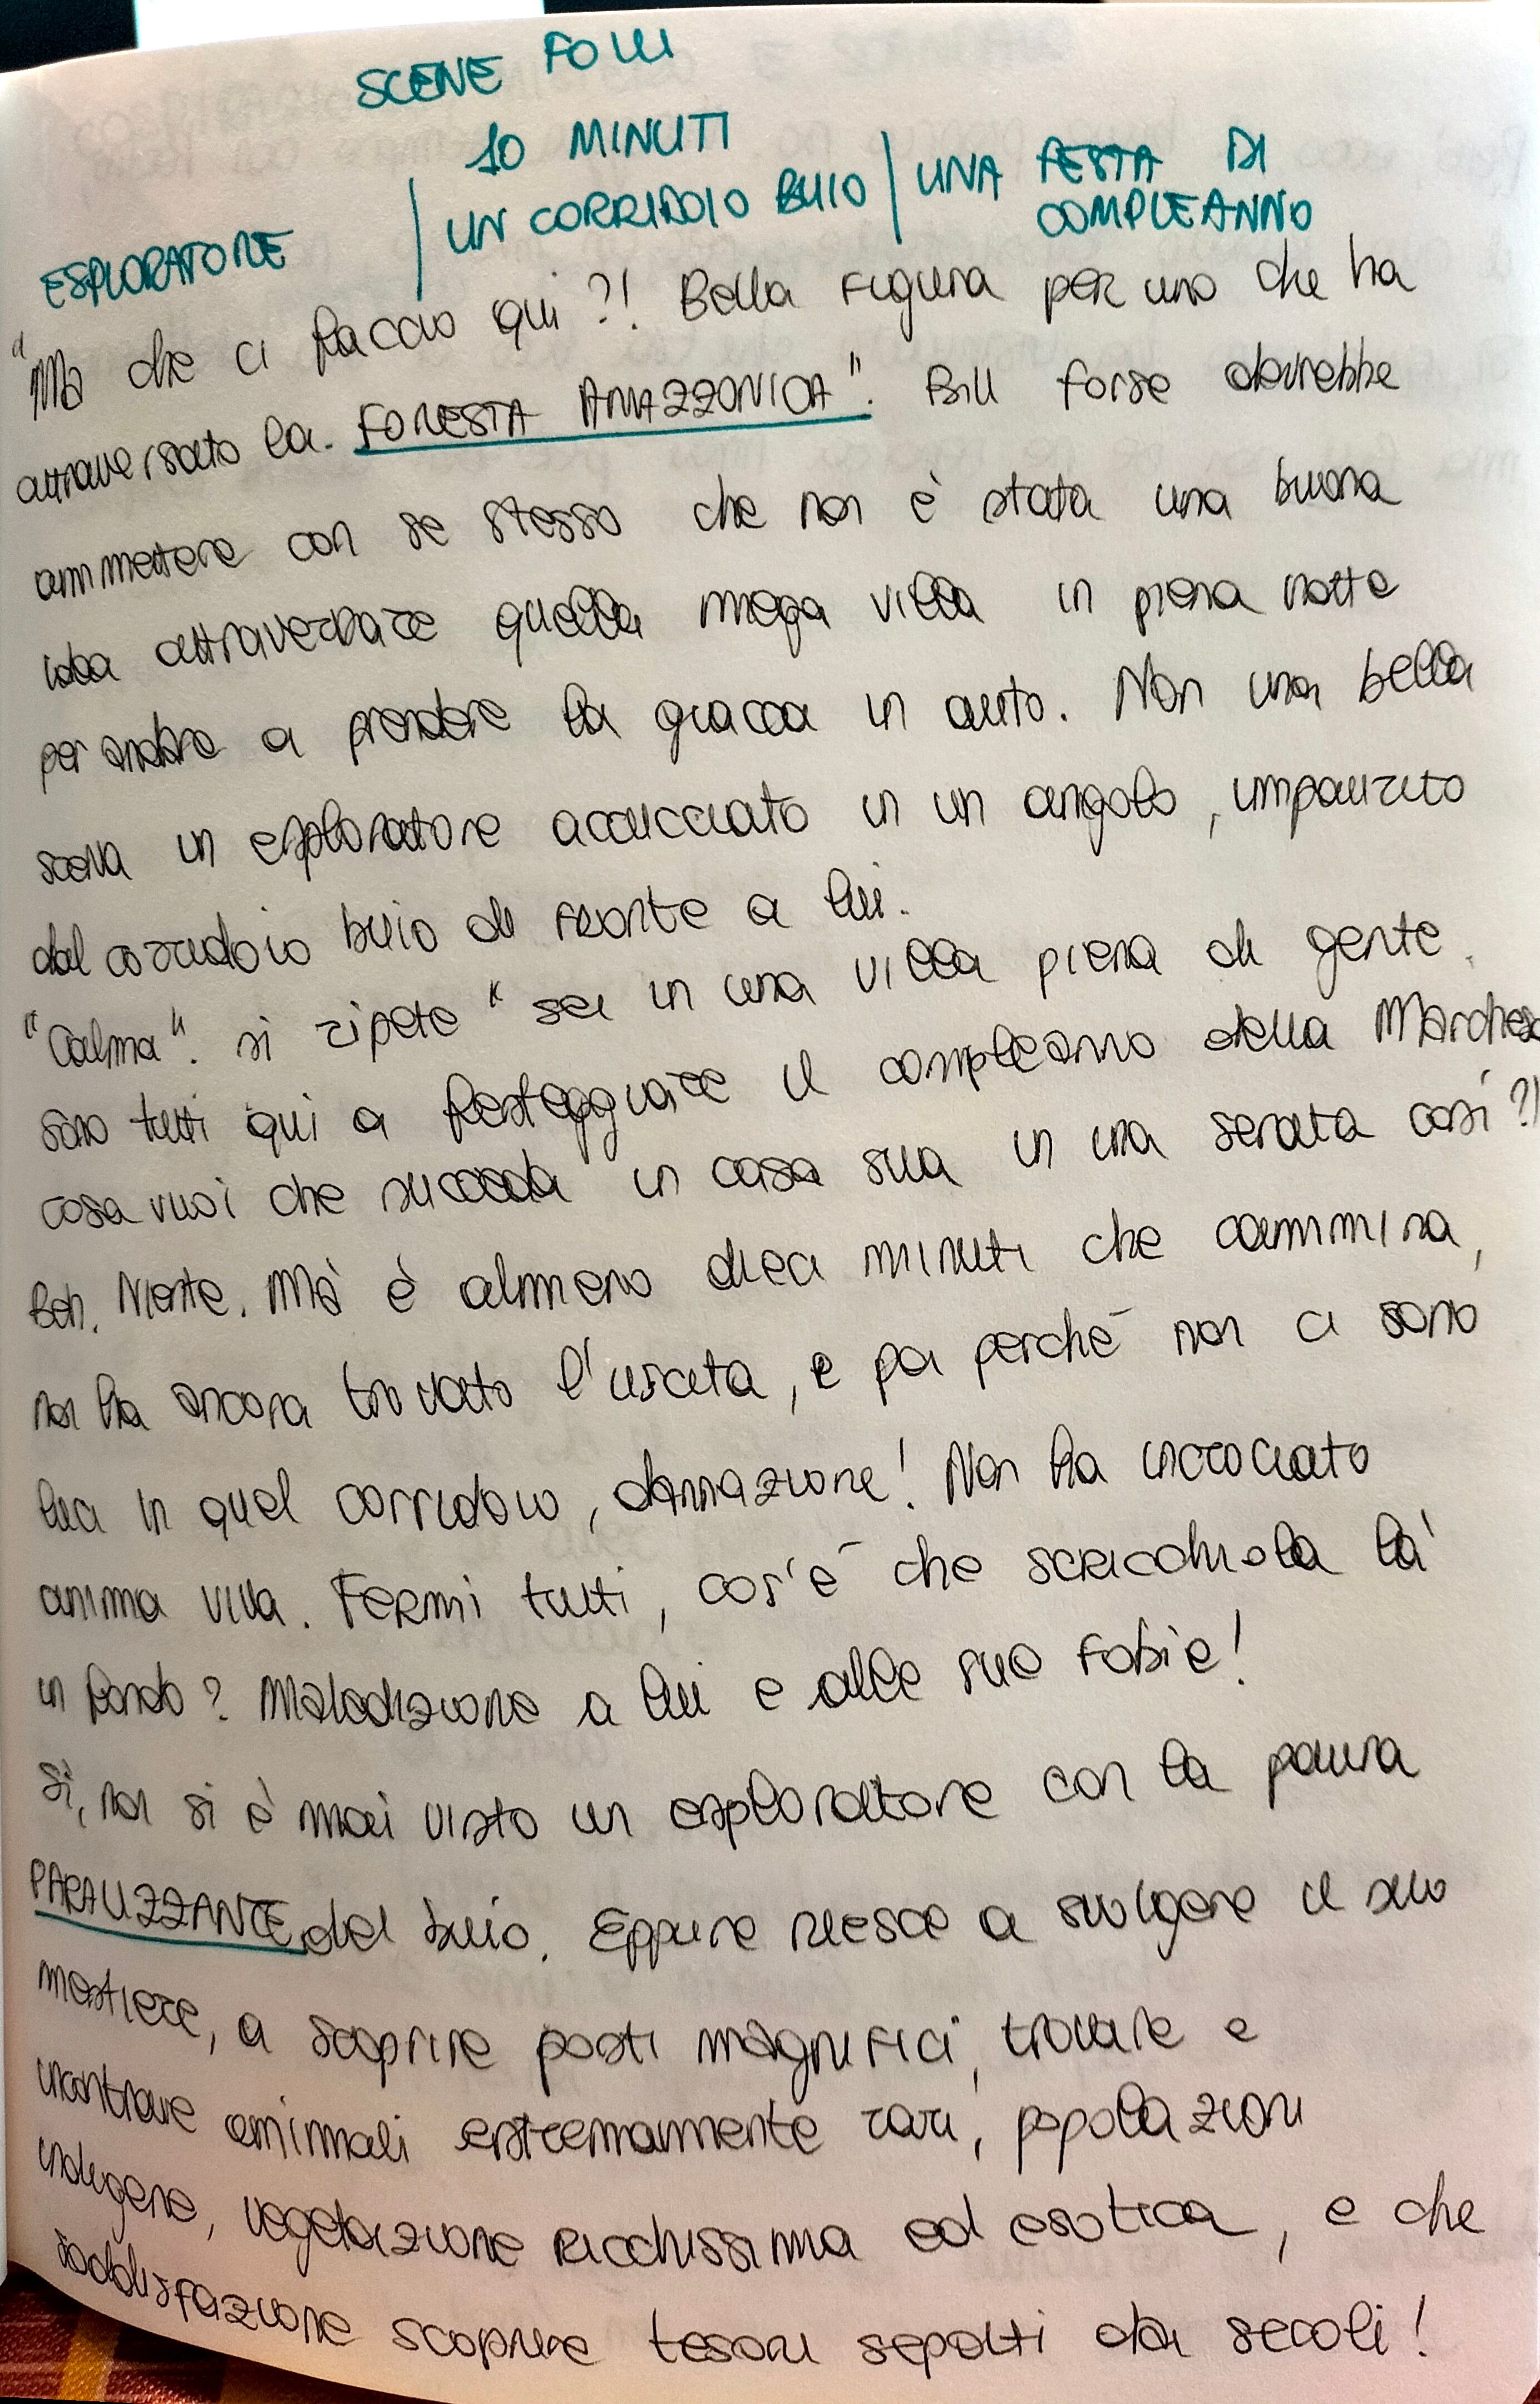 SCENE FOLLI
10 MINUTI
ESPLORATORE | UN CORRIDOIO BUIO | UNA FESTA DI
COMPLEANNO
"Ma che ci faccio qui?! Bella figura per uno che ha
attraversato la FORESTA AMAZZONICA". Bill forse dovrebbe
ammettere con se stesso che non è stata una buona
idea attraversare quella mega villa in piena notte
per andare a prendere la giacca in auto. Non una bella
scena un esploratore accucciato in un angolo, impaurito
dal corridoio buio di fronte a lui.
"Calma". si ripete "sei in una villa piena di gente.
sono tutti qui a festeggiare il compleanno della Marchesa
cosa vuoi che succeda in casa sua in una serata così?!
Beh. Niente. Ma è almeno dieci minuti che cammina,
non ha ancora trovato l'uscita, e poi perché non ci sono
luci in quel corridoio, dannazione! Non ha incrociato
anima viva. Fermi tutti, cos'è che scricchiola là
in fondo? Maledizione a lui e alle sue fobie!
Sì, non si è mai visto un esploratore con la paura
PARALIZZANTE del buio. Eppure riesce a svolgere il suo
mestiere, a scoprire posti magnifici, trovare e
incontrare animali estremamente rari, popolazioni
indigene, vegetazione ricchissima ed esotica, e che
soddisfazione scoprire tesori sepolti da secoli!